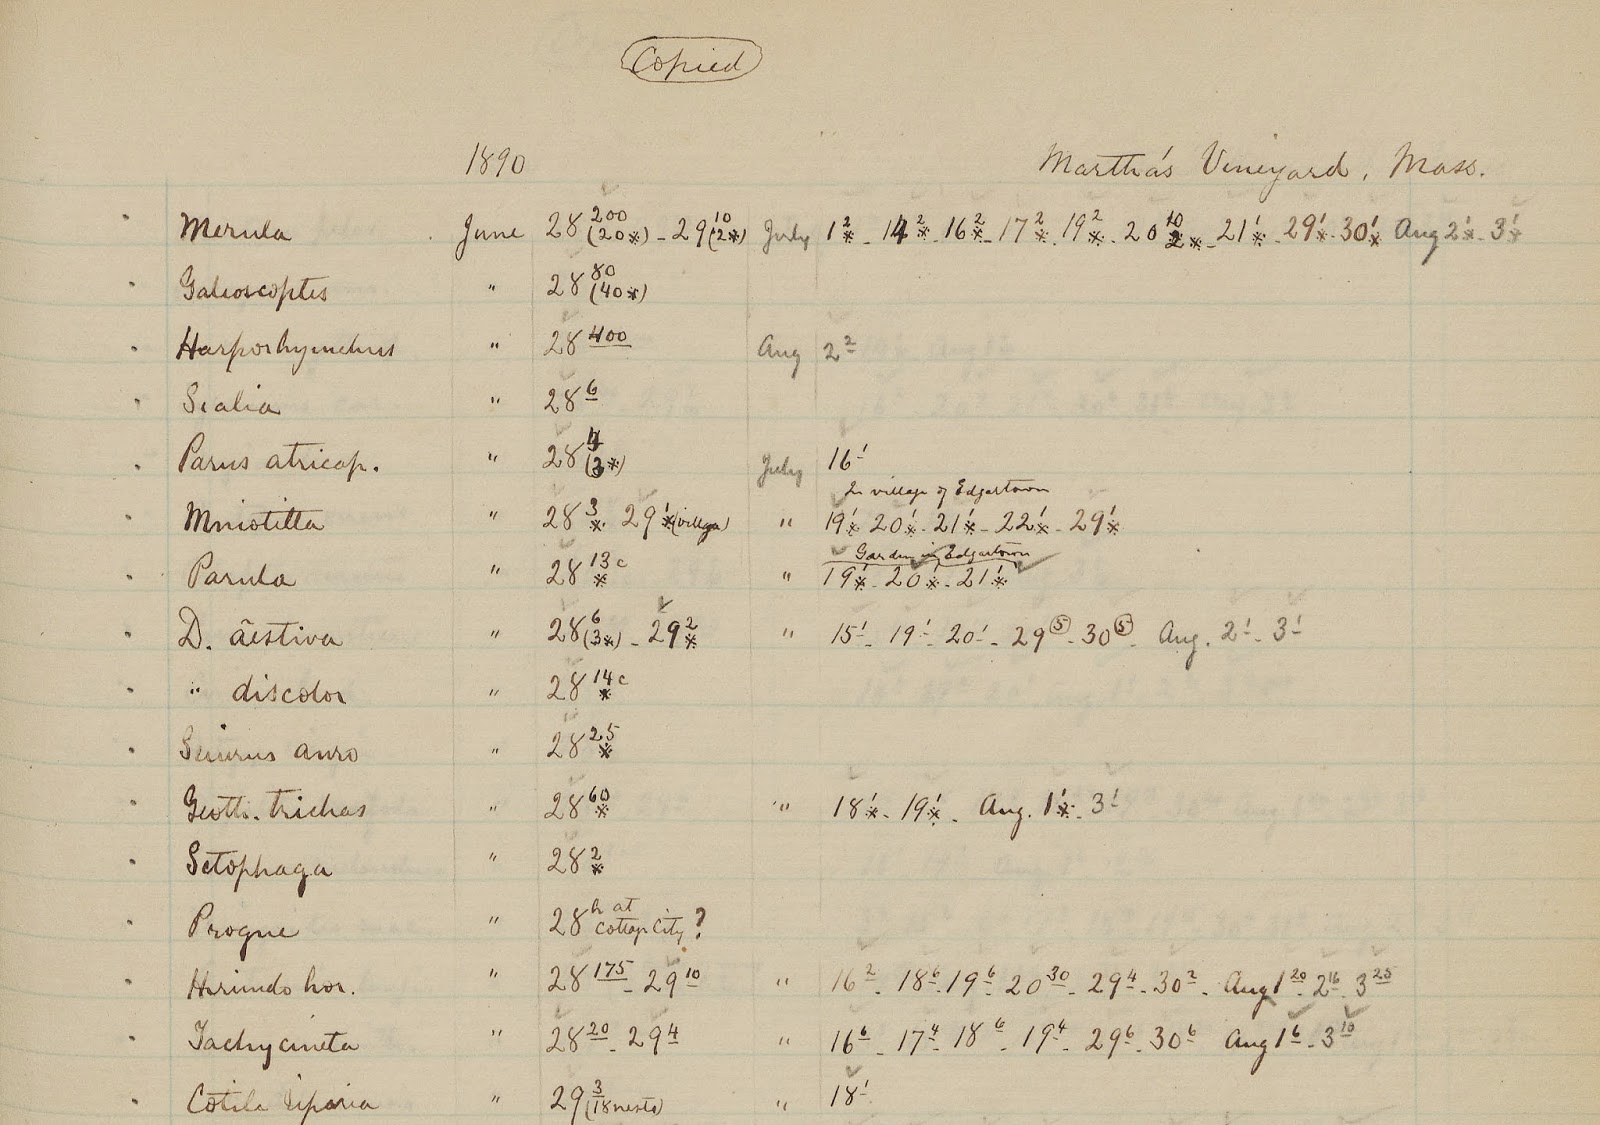 Copied
1890 Martha's Vineyard, Mass.
Merula June 28 200 (20*) - 29 10 (2*) July 1 2* - 14 2* - 16 2* - 17 2* - 19 2* - 20 10 2* - 21 1* - 29 1* - 30 1* Aug 2 1* - 3 1*
Galeoscoptes " 28 80 (40*)
Harporhynchus " 28 400 Aug 2 2
Sialia " 28 6
Parus atricap. " 28 4 (3*) July 16 1
In village of Edgartown
Mniotilta " 28 3* - 29 1* (village) " 19 1* - 20 1* - 21 1* - 22 1* - 29 1*
Garden in Edgartown
Parula " 28 13c * " 19 1* - 20 1* - 21 1*
D. æstiva " 28 6 (3*) - 29 2* " 15 1 - 19 1 - 20 1 - 29 5 - 30 5 - Aug. 2 1 - 3 1
" discolor " 28 14c *
Seiurus auro " 28 25 *
Geoth. trichas " 28 60 * " 18 1* - 19 1* - Aug. 1 1* - 3 1
Setophaga " 28 2 *
Progne " 28 h at Cottage City ?
Hirundo hor. " 28 175 - 29 10 " 16 2 - 18 6 - 19 6 - 20 30 - 29 4 - 30 2 - Aug 1 20 - 2 16 - 3 25
Tachycineta " 28 20 - 29 4 " 16 6 - 17 4 - 18 6 - 19 4 - 29 6 - 30 6 Aug 1 6 - 3 10
Cotile riparia " 29 3 (18 nests) " 18 1